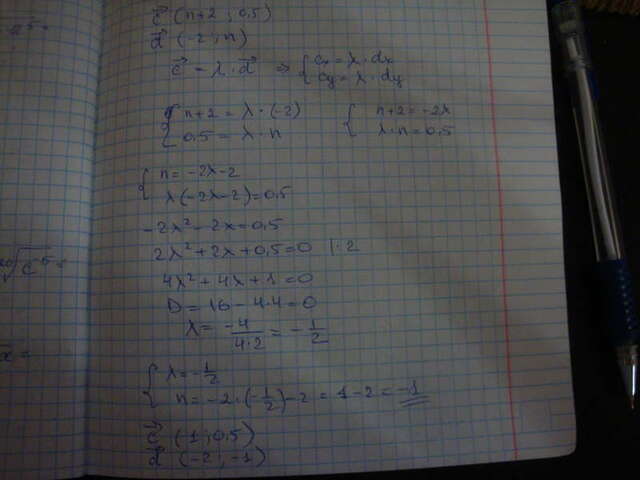 c⃗ (n+2 ; 0,5)
d⃗ (-2 ; n)
c⃗ = λ · d⃗ ⇒ { cx = λ · dx
cy = λ · dy
{ n+2 = λ · (-2)
0,5 = λ · n
{ n+2 = -2λ
λ · n = 0,5
{ n = -2λ-2
λ(-2λ-2) = 0,5
-2λ² - 2λ = 0,5
2λ² + 2λ + 0,5 = 0 | · 2
4λ² + 4λ + 1 = 0
D = 16 - 4·4 = 0
λ = -4/4·2 = -1/2
{ λ = -1/2
n = -2 · (-1/2) - 2 = 1 - 2 = -1
c⃗ (-1 ; 0,5)
d⃗ (-2 ; -1)